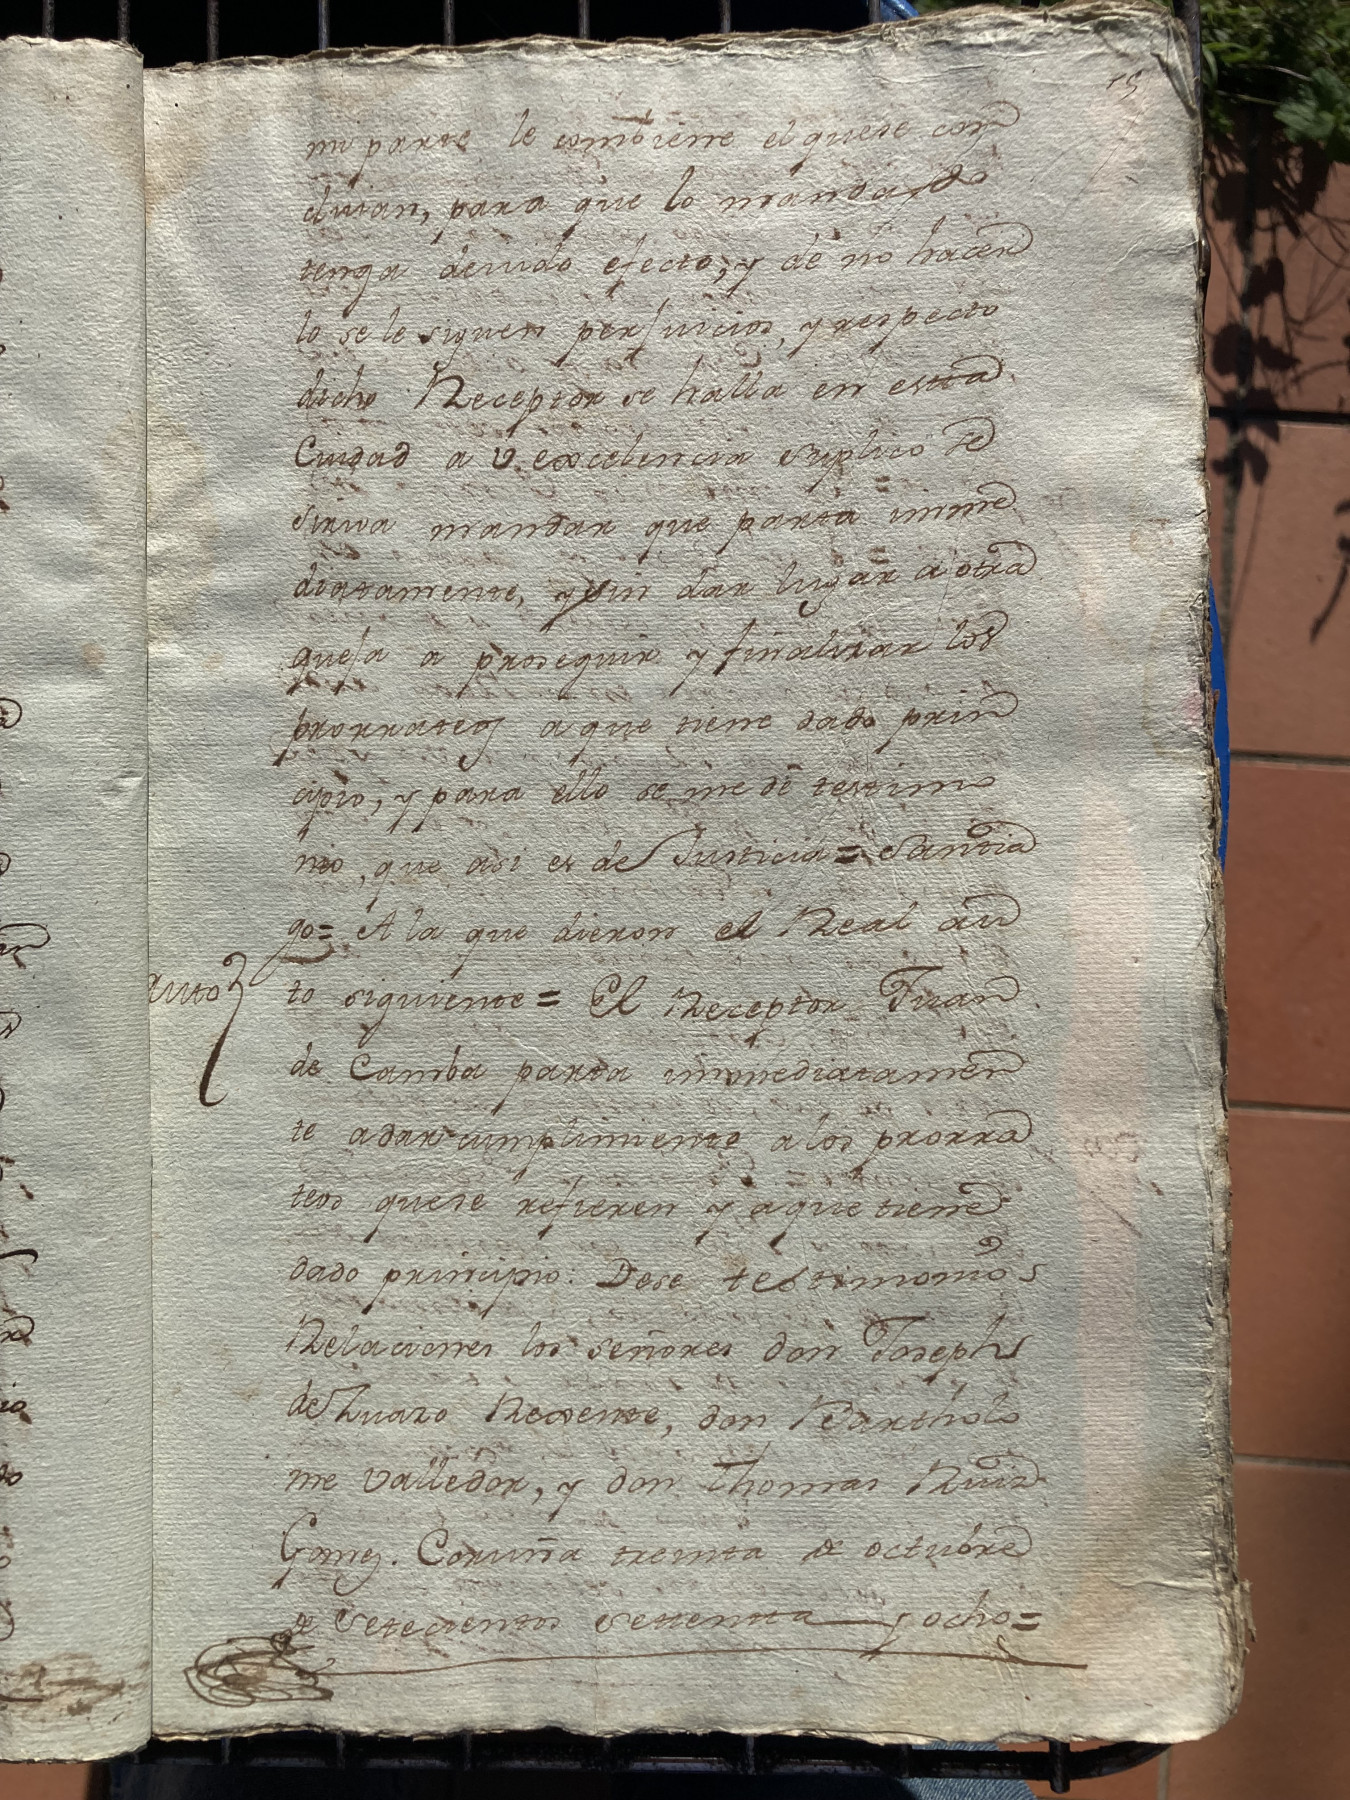 15
mi parte le combiene el quese con
cluian, para que lo mandado
tenga devido efecto, y de no hacer
lo se le siguen perjuicios, y respecto
dicho Receptor se halla en esta
Ciudad a V. excelencia suplico se
sirva mandar que parta imme
diatamente, y sin dar lugar a otra
queja a proseguir y finalizar los
prorrateos a que tiene dado prin
cipio, y para ello se me dé testimo
nio, que asi es de Justicia = Santia
go = A la que dieron el Real au
auto
to siguiente = El Receptor Juan
de Camba parta immediatamen
te a dar cumplimiento a los prorra
teos quese refieren y a que tiene
dado principio: Dese testimonio s
Relaciones los señores don Joseph
de Zuazo Rexente, don Bartholo
me Valledor, y don Thomas Ruiz
Gomez. Coruña treinta de octubre
de Setecientos settenta y ocho =